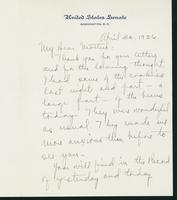 United States Senate
WASHINGTON, D.C.
April 20, 1926.
My dear
Thank you for your letters
and for the loving thought.
I had some of the cookies
last night and part - a
large part - of the
today. They were wonderful
as usual. They made us
more anxious than before to
see you -
You will find in the Record
of yesterday and today